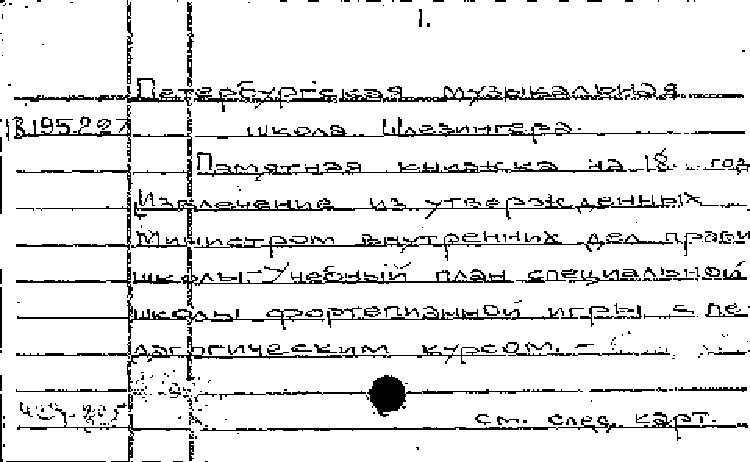 1.
Петербургская музыкальная
В195.227 школа Шлезингера.
Памятная книжка на 18 год
Извлечение из утвержденных
Министром внутренних дел прави
школы. Учебный план специальной
школы фортепианной игры с пе-
дагогическим курсом. -
см. след. карт.